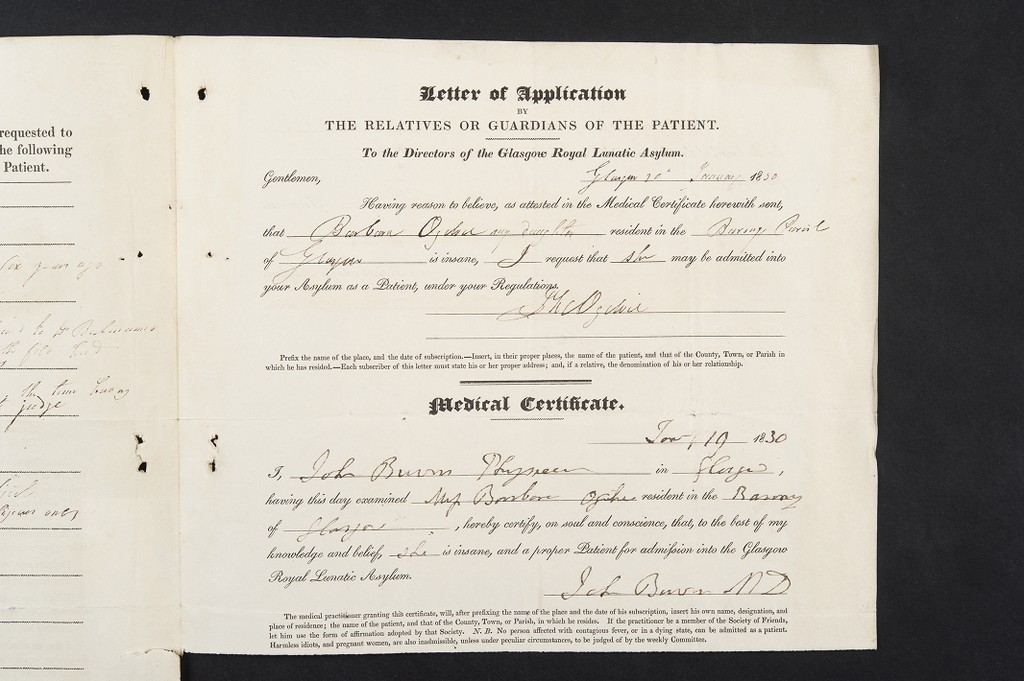 requested to
he following
Patient.
years ago
to Dr
the
the time being
judge
only
Letter of Application
BY
THE RELATIVES OR GUARDIANS OF THE PATIENT.
To the Directors of the Glasgow Royal Lunatic Asylum.
Gentlemen, Glasgow 20 January 1830
Having reason to believe, as attested in the Medical Certificate herewith sent,
that Barbara Ogilvie my daughter resident in the Barony Parish
of Glasgow is insane, I request that she may be admitted into
your Asylum as a Patient, under your Regulations.
Ogilvie
Prefix the name of the place, and the date of subscription.—Insert, in their proper places, the name of the patient, and that of the County, Town, or Parish in
which he has resided.—Each subscriber of this letter must state his or her proper address; and, if a relative, the denomination of his or her relationship.
Medical Certificate.
19 1830
I, John Burns Physician in Glasgow,
having this day examined Miss Barbara Ogilvie resident in the Barony
of Glasgow, hereby certify, on soul and conscience, that, to the best of my
knowledge and belief, she is insane, and a proper Patient for admission into the Glasgow
Royal Lunatic Asylum.
John Burns MD
The medical practitioner granting this certificate, will, after prefixing the name of the place and the date of his subscription, insert his own name, designation, and
place of residence; the name of the patient, and that of the County, Town, or Parish, in which he resides. If the practitioner be a member of the Society of Friends,
let him use the form of affirmation adopted by that Society. N. B. No person affected with contagious fever, or in a dying state, can be admitted as a patient.
Harmless idiots, and pregnant women, are also inadmissible, unless under peculiar circumstances, to be judged of by the weekly Committee.